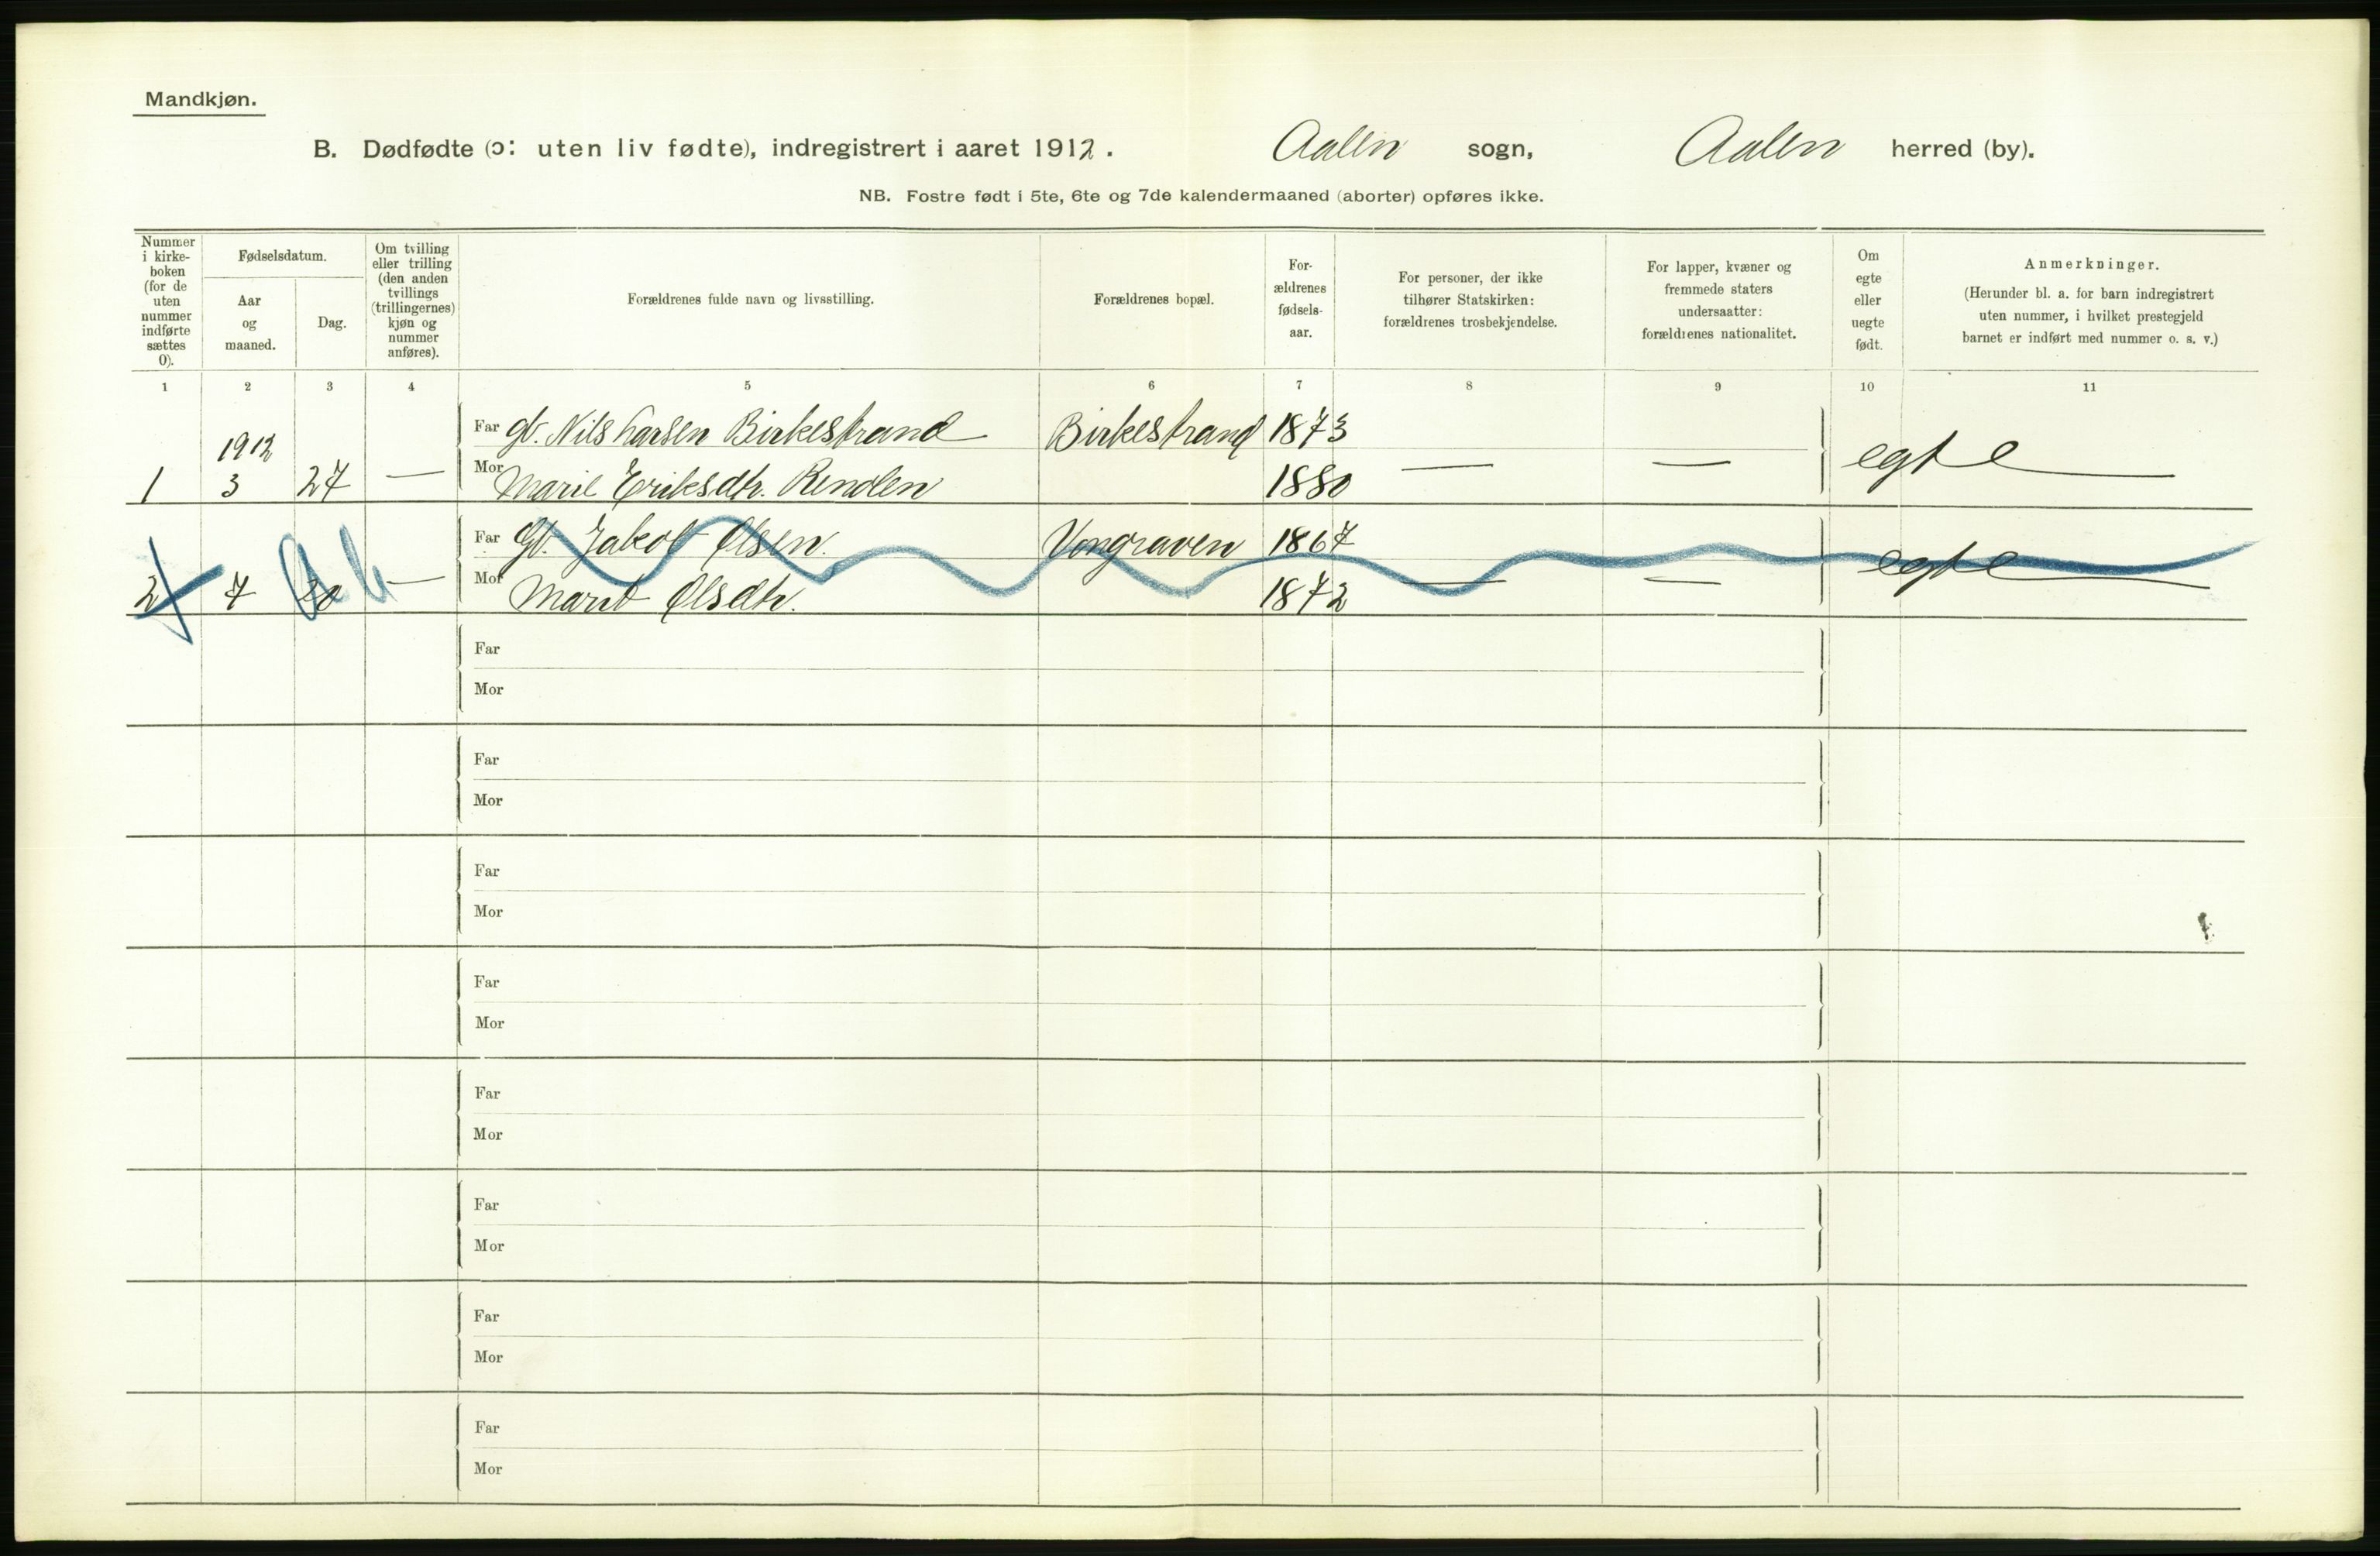 Mandkjøn.
B. Dødfødte (ɔ: uten liv fødte), indregistrert i aaret 1912. Aalen sogn, Aalen herred (by).
NB. Fostre født i 5te, 6te og 7de kalendermaaned (aborter) opføres ikke.
Nummer i kirke- boken (for de uten nummer indførte sættes 0).
Fødselsdatum.
Aar og maaned.
Dag.
Om tvilling eller trilling (den anden tvillings (trillingernes) kjøn og nummer anføres).
Forældrenes fulde navn og livsstilling.
Forældrenes bopæl.
For- ældrenes fødsels- aar.
For personer, der ikke tilhører Statskirken: forældrenes trosbekjendelse.
For lapper, kvæner og fremmede staters undersaatter: forældrenes nationalitet.
Om egte eller uegte født.
Anmerkninger.
(Herunder bl. a. for barn indregistrert uten nummer, i hvilket prestegjeld barnet er indført med nummer o. s. v.)
1 2 3 4 5 6 7 8 9 10 11
Far gb. Nils Larsen Birkestrand Birkestrand 1873
1912
1 3 27 — Mor Marie Eriksdtr. Renden 1880 — — egte
Far Gb. Jakob Olsen. Vongraven 1867
2 7 20 — Mor Marit Olsdtr. 1872 — — egte
Far
Mor
Far
Mor
Far
Mor
Far
Mor
Far
Mor
Far
Mor
Far
Mor
Far
Mor